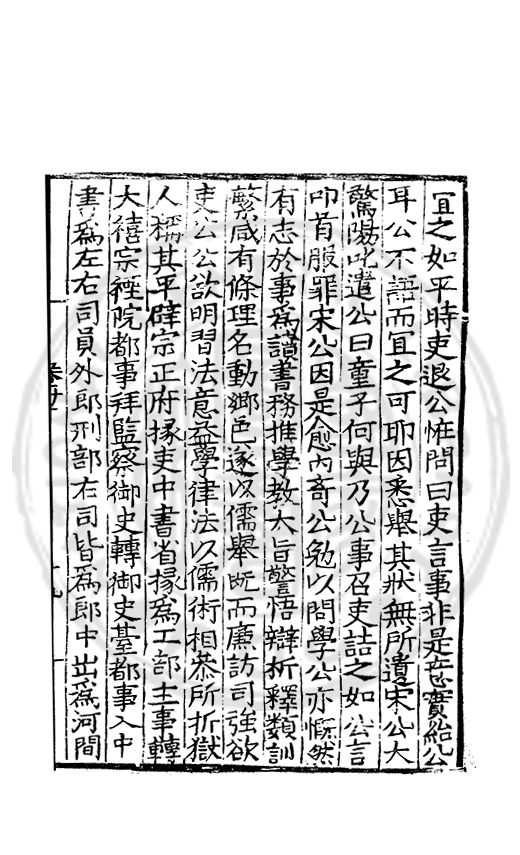 宜之如平時吏退公怪問曰吏言事非是意實紿公
耳公不語而宜之可耶因悉舉其狀無所遺宋公大
驚陽叱遣公曰童子何與乃公事召吏詰之如公言
叩首服罪宋公因是愈內奇公勉以問學公亦慨然
有志於事爲讀書務推學教大旨警悟辯折釋類訓
繁咸有條理名動鄉邑遂以儒舉既而廉訪司強欲
吏公公欲明習法意益學律法以儒術相叅所折獄
人稱其平辟宗正府掾吏中書省掾爲工部主事轉
大禧宗禋院都事拜監察御史轉御史臺都事入中
書爲左右司員外郎刑部右司皆爲郎中出爲河間